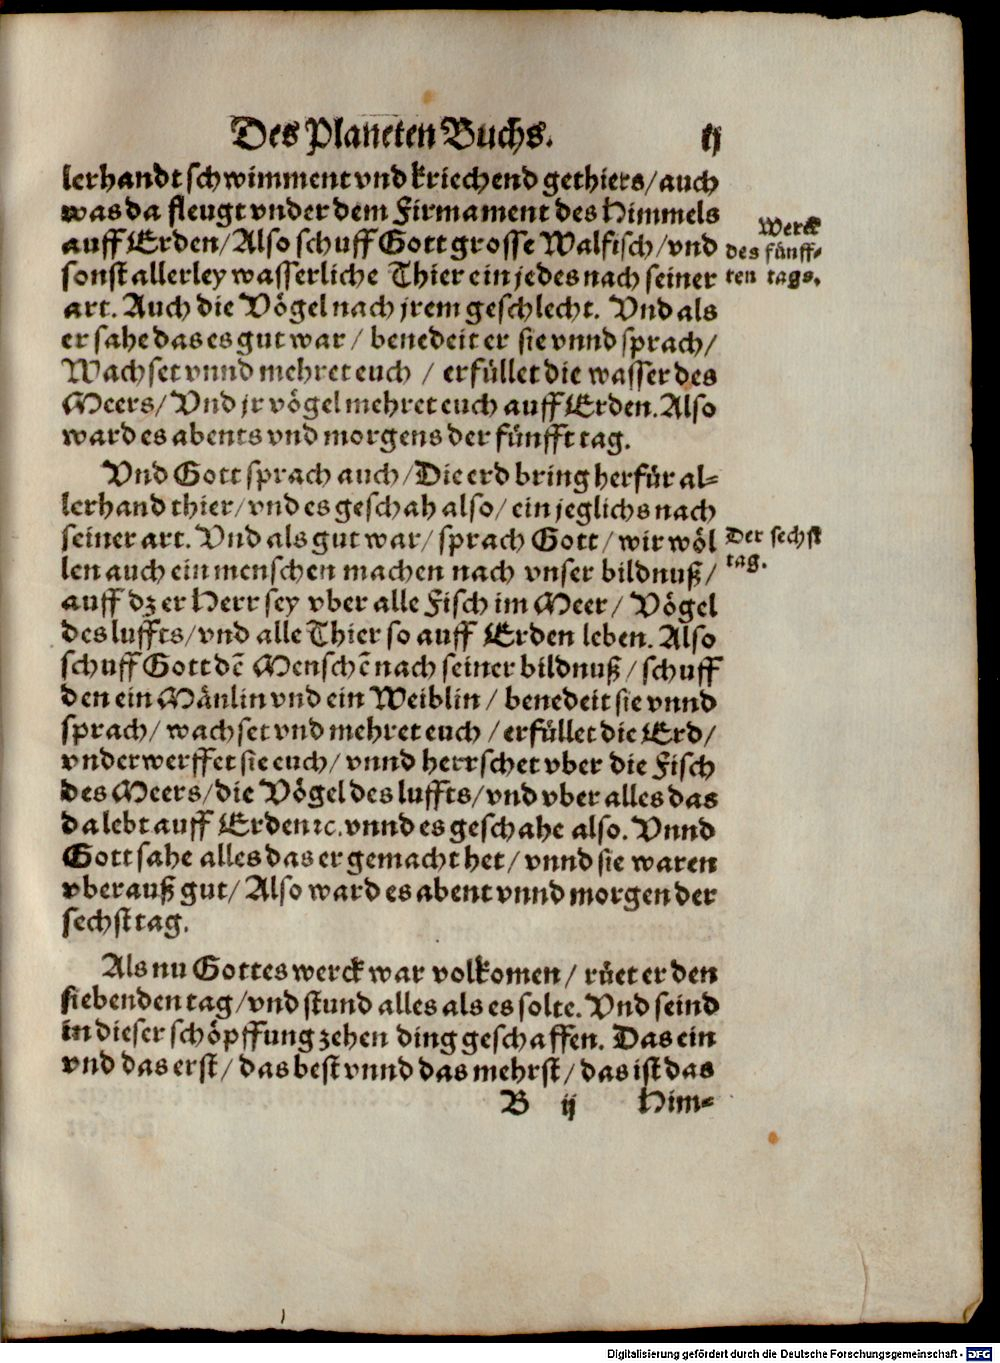 Des Planeten Buchs. ij
lerhandt schwimment vnd kriechend gethiers/ auch
was da fleugt vnder dem Firmament des Himmels
auff Erden/ Also schuff Gott grosse Walfisch/ vnd
sonst allerley wasserliche Thier ein jedes nach seiner
art. Auch die Vögel nach jrem geschlecht. Vnd als
er sahe das es gut war/ benedeit er sie vnnd sprach/
Wachset vnnd mehret euch / erfüllet die wasser des
Meers/ Vnd jr vögel mehret euch auff Erden. Also
ward es abents vnd morgens der fünfft tag.
Werck
des fünff-
ten tags.
Vnd Gott sprach auch/ Die erd bring herfür al-
lerhand thier/ vnd es geschah also/ ein jeglichs nach
seiner art. Vnd als gut war/ sprach Gott/ wir wöl
len auch ein menschen machen nach vnser bildnuß/
auff dz er Herr sey vber alle Fisch im Meer/ Vögel
des luffts/ vnd alle Thier so auff Erden leben. Also
schuff Gott dē Menschē nach seiner bildnuß/ schuff
den ein Mänlin vnd ein Weiblin/ benedeit sie vnnd
sprach/ wachset vnd mehret euch / erfüllet die Erd/
vnderwerffet sie euch/ vnnd herrschet vber die Fisch
des Meers/ die Vögel des luffts/ vnd vber alles das
da lebt auff Erden ꝛc. vnnd es geschahe also. Vnnd
Gott sahe alles das er gemacht het/ vnnd sie waren
vberauß gut/ Also ward es abent vnnd morgen der
sechst tag.
Der sechst
tag.
Als nu Gottes werck war volkomen/ rüet er den
siebenden tag/ vnd stund alles als es solte. Vnd seind
in dieser schöpffung zehen ding geschaffen. Das ein
vnd das erst/ das best vnnd das mehrst/ das ist das
B ij Him-
Digitalisierung gefördert durch die Deutsche Forschungsgemeinschaft - DFG